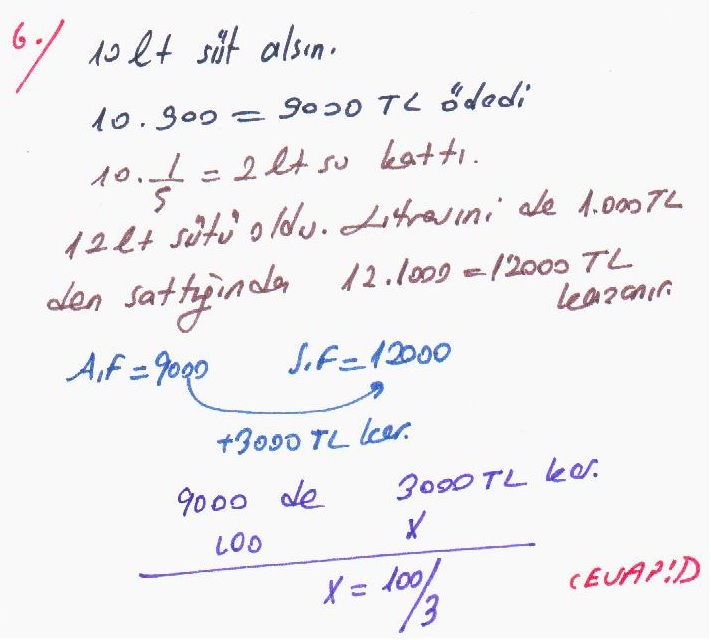 6./ 10 lt süt alsın.
10.900 = 9000 TL ödedi
10.1/5 = 2 lt su kattı.
12 lt sütü oldu. Litresini de 1.000 TL
den sattığında 12.1000 = 12000 TL
kazanır.
A.F = 9000 S.F = 12000
+3000 TL kar.
9000 de 3000 TL kar.
100 X
X = 100/3
CEVAP:D